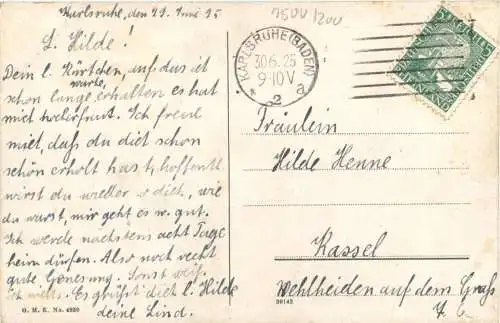 Karlsruhe, den 29. Juni 25
L. Hilde!
Dein l. Kärtchen, auf das ich
schon lange warte, erhalten es hat
mich hocherfreut. Ich freue
mich, daß du dich schon
schön erholt hast, hoffentl.
wirst du wieder so dick, wie
du warst, mir geht es w. gut.
Ich werde nächstens acht Tage
heim dürfen. Also noch recht
gute Genesung. Sonst weiß
ich nichts. Es grüßt dich l. Hilde
deine Lind.
G. M. K. No. 4950
1500/200
KARLSRUHE (BADEN)
30.6.25
9-10 V
* 2 a
Fräulein
Hilde Henne
Kassel
Wehlheiden auf dem Gras
39145